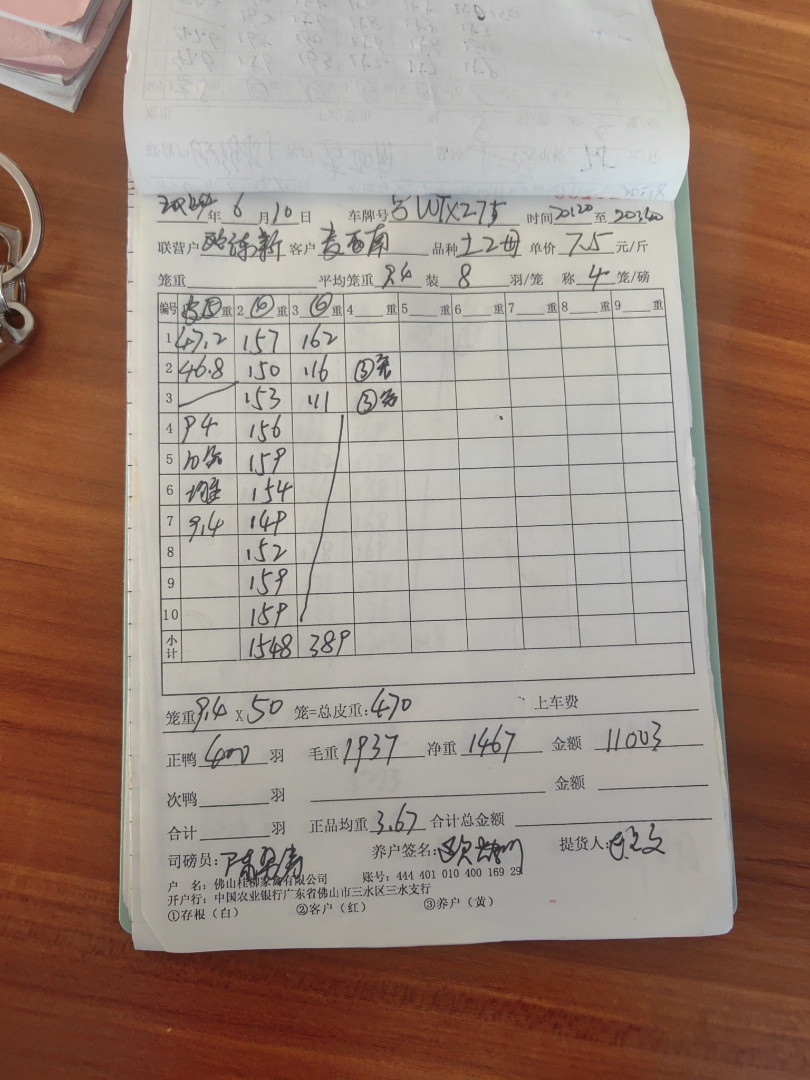 年 6 月 10 日 车牌号 WTX275 时间 20:20 至 20:3
联营户 客户 麦西南 品种 土2母 单价 7.5 元/斤
笼重 平均笼重 9.4 装 8 羽/笼 称 4 笼/磅
编号 重 2 ⑥ 重 3 ⑥ 重 4 重 5 重 6 重 7 重 8 重 9 重
1 47.2 157 162
2 46.8 150 116 ③
3 153 111 ③
4 94 156
5 159
6 154
7 9.4 149
8 152
9 159
10 159
小计 1548 389
笼重 9.4 X 50 笼=总皮重: 470 上车费
正鸭 400 羽 毛重 1937 净重 1467 金额 11003
次鸭 羽 金额
合计 羽 正品均重 3.67 合计总金额
司磅员: 养户签名: 提货人:
户 名: 佛山桂柳家禽有限公司 账号: 444 401 010 400 169 29
开户行: 中国农业银行广东省佛山市三水区三水支行
①存根（白） ②客户（红） ③养户（黄）